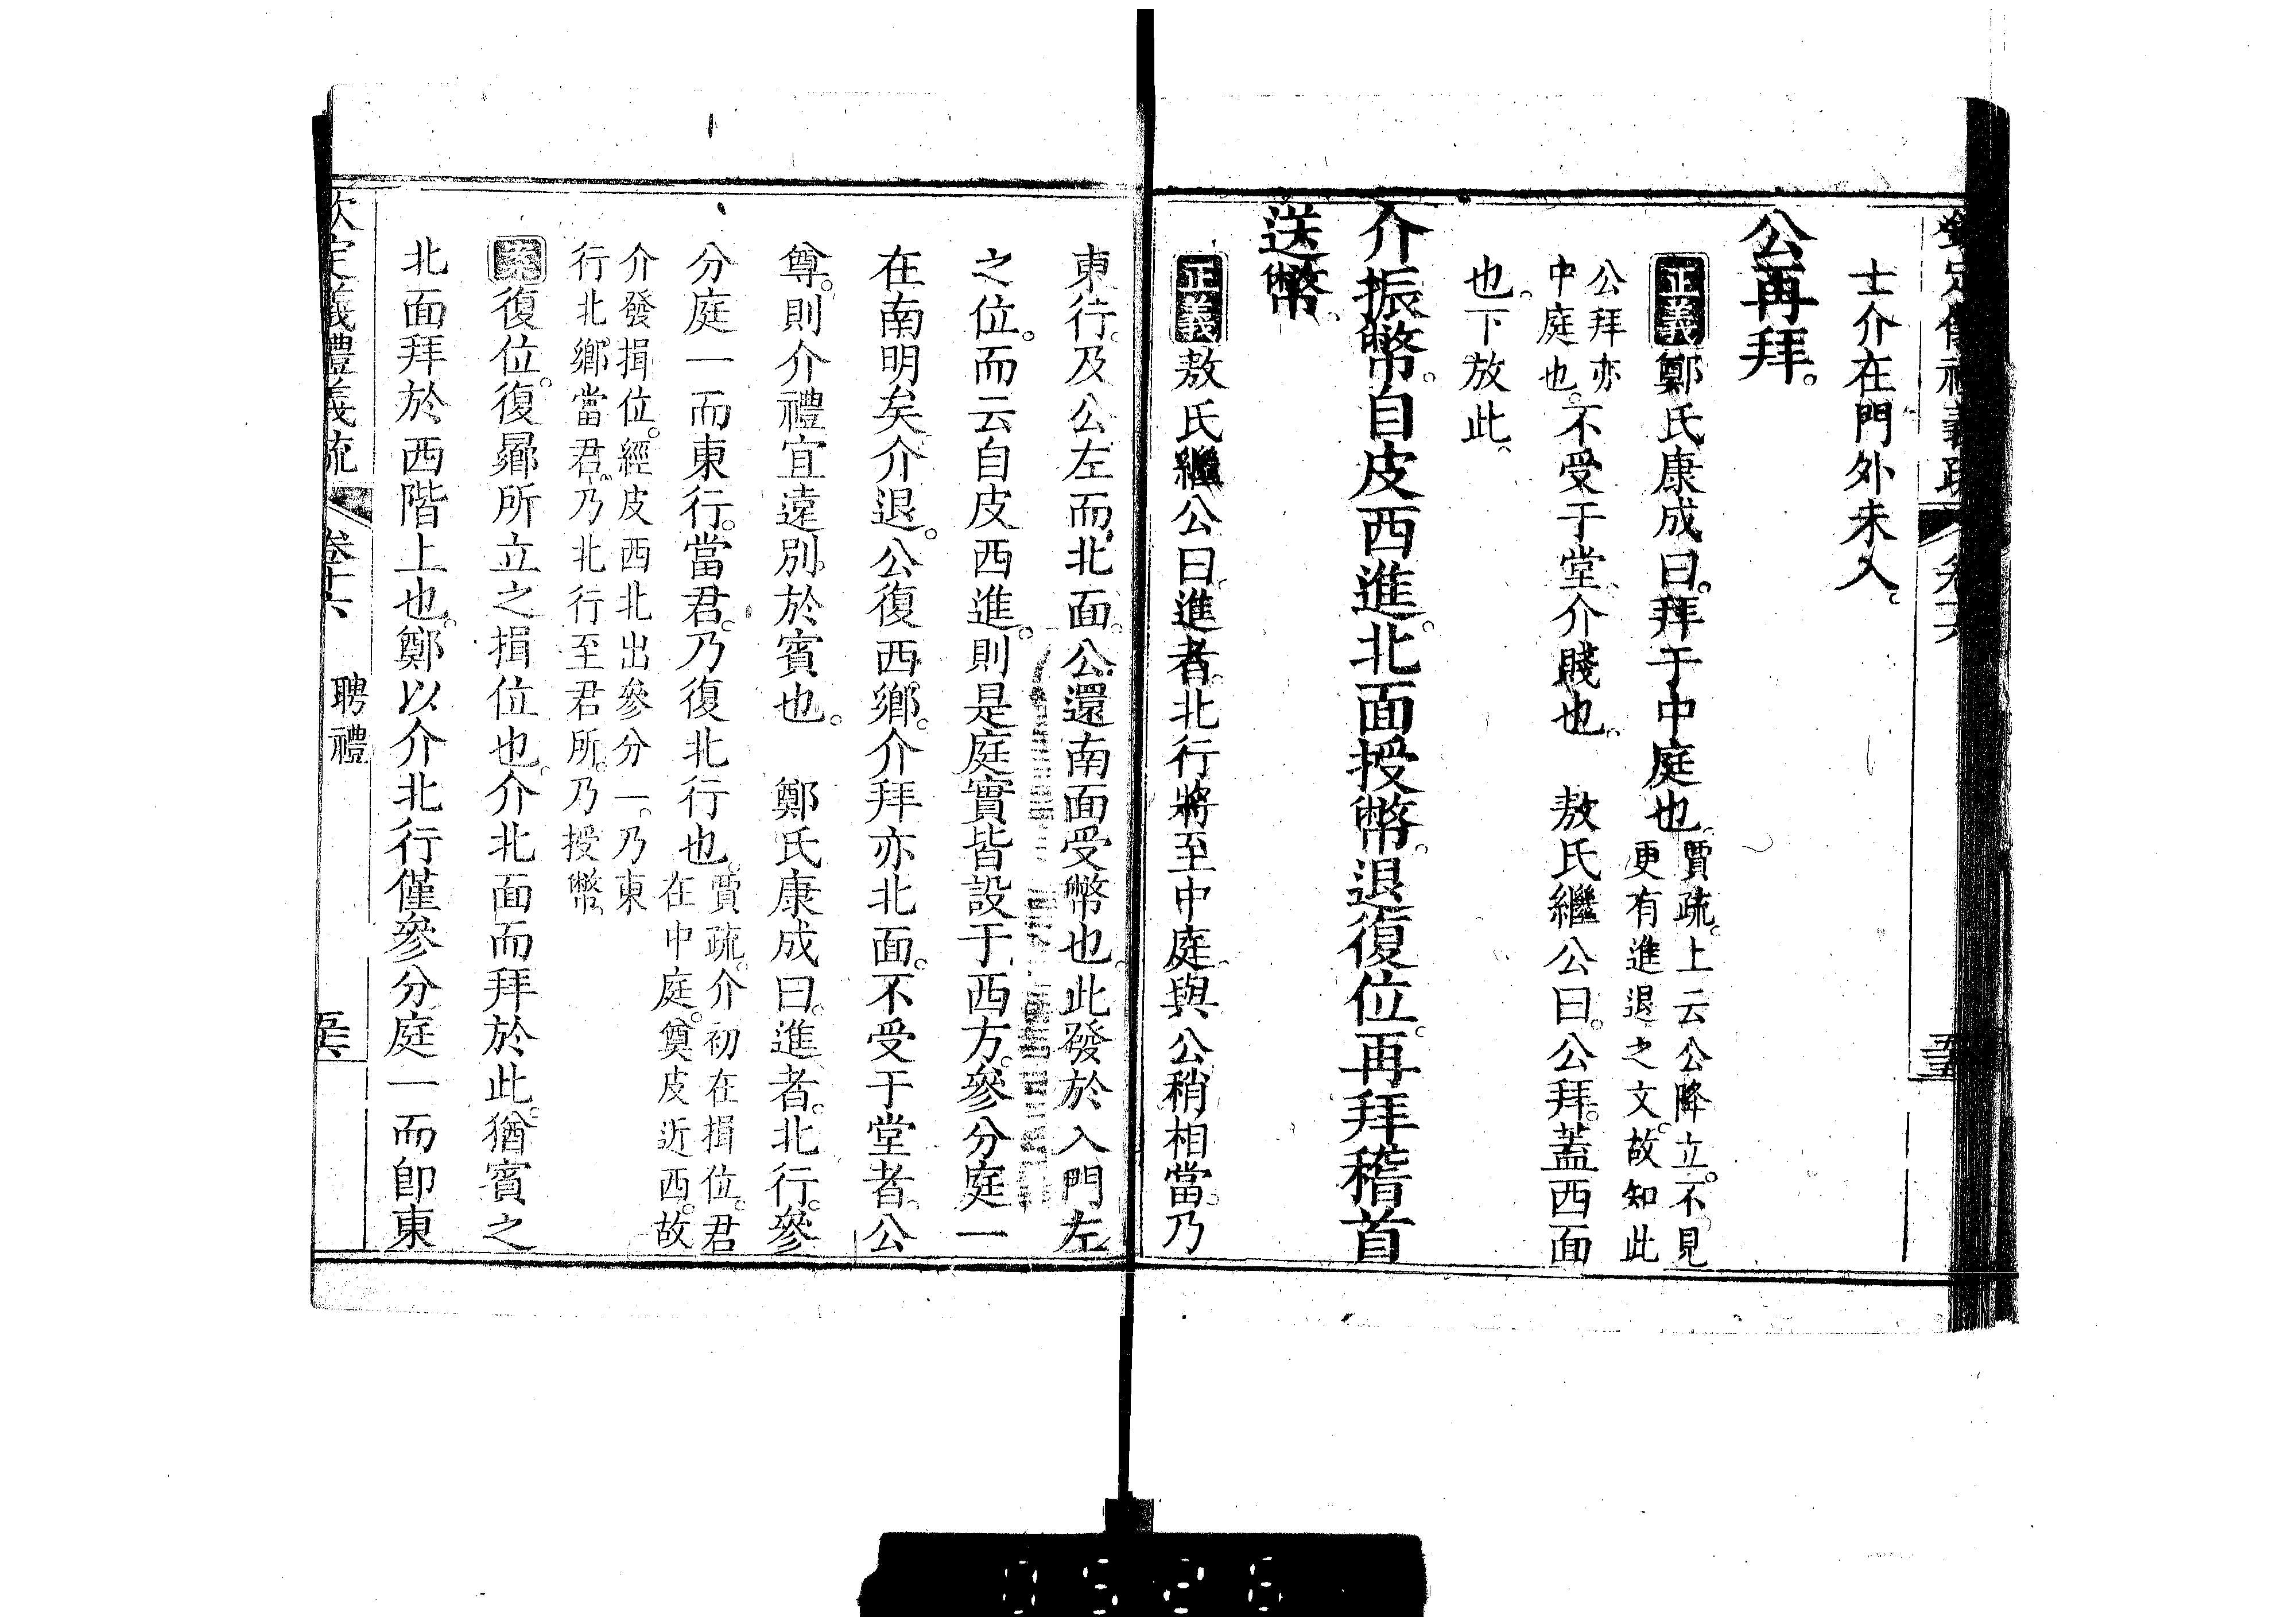 士介在門外未入。
公再拜。
正義鄭氏康成曰。拜于中庭也。賈疏。上云公降立。不見
更有進退之文。故知此
公拜亦
中庭也。不受于堂。介賤也。 敖氏繼公曰。公拜。蓋西面
也。下放此。
介振幣。自皮西進。北面授幣。退復位。再拜稽首
送幣。
正義敖氏繼公曰。進者。北行將至中庭。與公稍相當。乃
東行。及公左而北面。公還南面受幣也。此發於入門左
之位。而云自皮西進。則是庭實皆設于西方。參分庭一
在南明矣。介退。公復西鄉。介拜亦北面。不受于堂者。公
尊。則介禮宜遠別於賓也。 鄭氏康成曰。進者。北行。參
分庭一而東行。當君。乃復北行也。賈疏。介初在揖位。君
在中庭。奠皮近西。故
介發揖位。經皮西北出參分一。乃東
行北鄉當君。乃北行至君所。乃授幣。
案復位。復曏所立之揖位也。介北面而拜於此。猶賓之
北面拜於西階上也。鄭以介北行僅參分庭一而卽東
欽定義禮義疏 卷十六 聘禮 五六